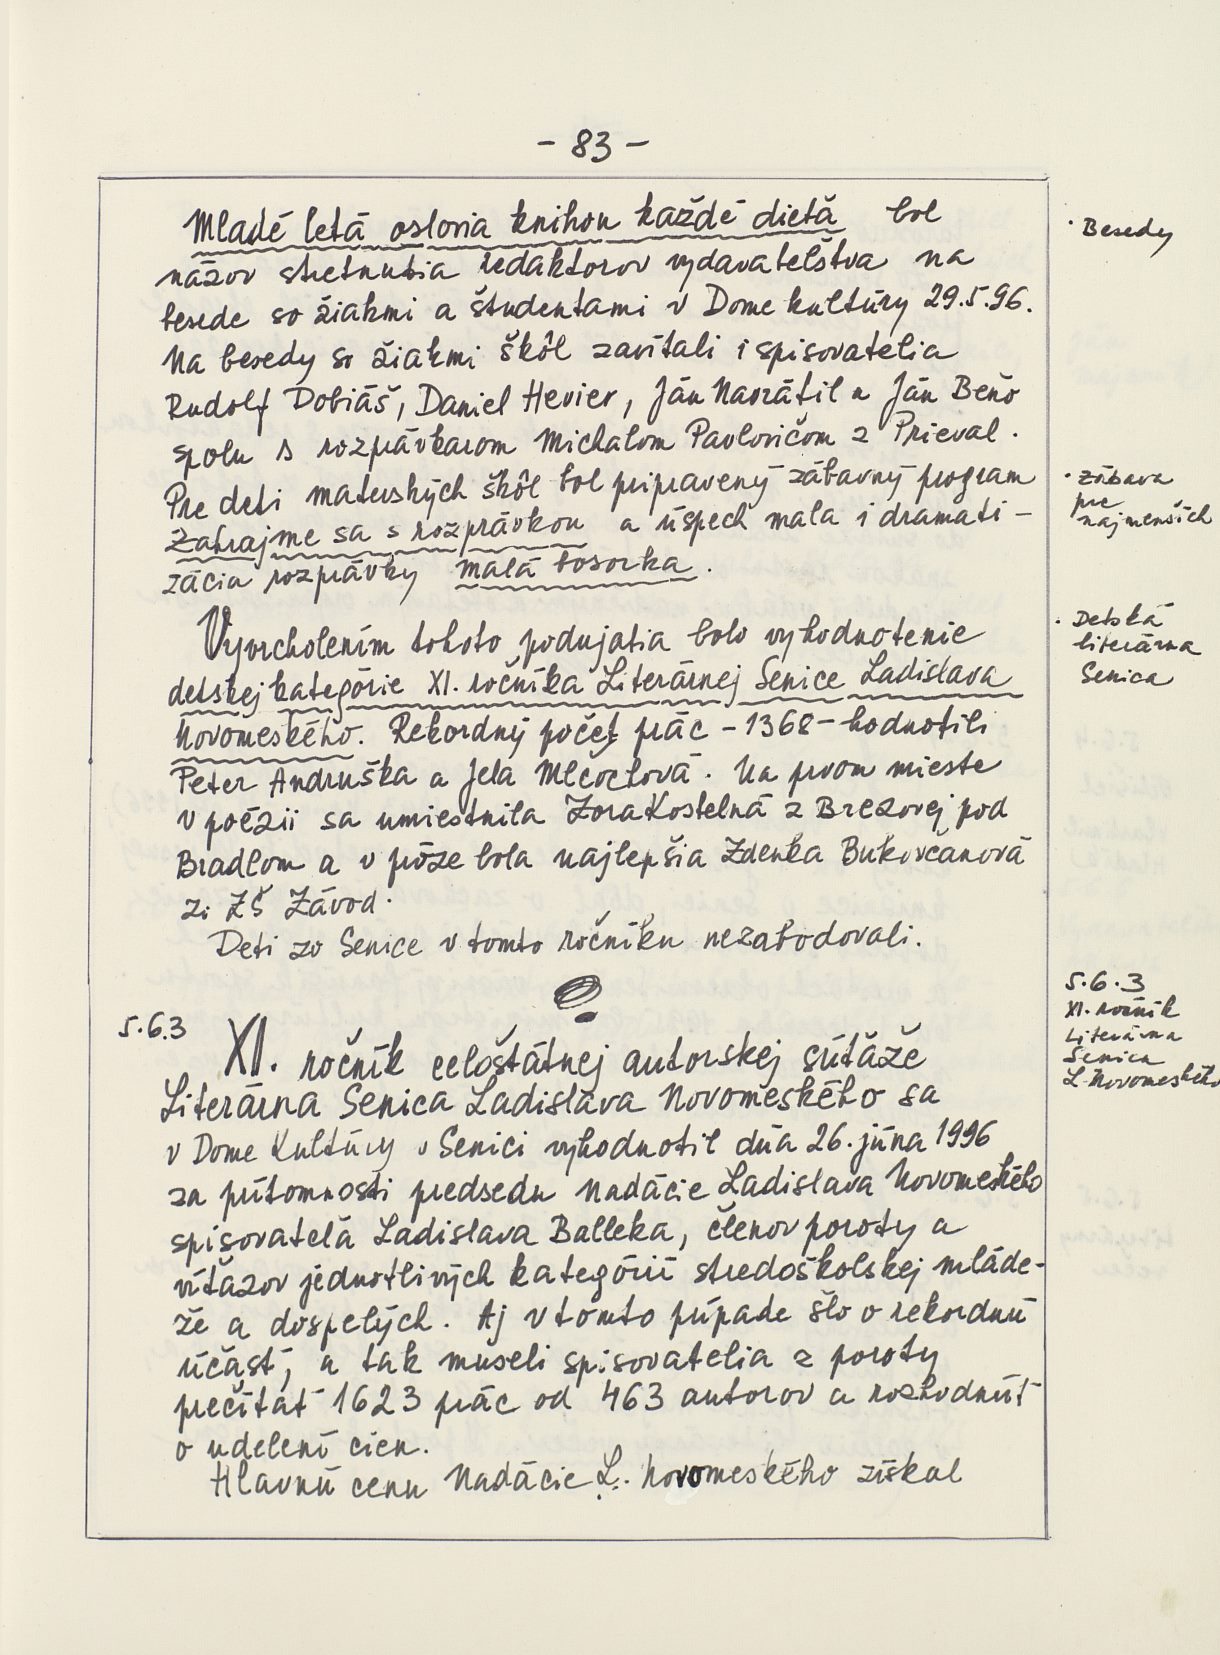 - 83 -
Mladé letá oslovia knihou každé dieťa bol
názov stretnutia redaktorov vydavateľstva na
besede so žiakmi a študentami v Dome kultúry 29.5.96.
Na besedy so žiakmi škôl zavítali i spisovatelia
Rudolf Dobiáš, Daniel Hevier, Ján Navrátil a Ján Beňo
spolu s rozprávkarom Michalom Pavlovičom z Prieval.
Pre deti materských škôl bol pripravený zábavný program
Zahrajme sa s rozprávkou a úspech mala i dramati-
zácia rozprávky malá bosorka.
Vyvrcholením tohoto podujatia bolo vyhodnotenie
detskej kategórie XI. ročníka Literárnej Senice Ladislava
Novomeského. Rekordný počet prác - 1368 - hodnotili
Peter Andruška a Jela Mlčochová. Na prvom mieste
v poézii sa umiestnila Zora Kostelná z Brezovej pod
Bradlom a v próze bola najlepšia Zdenka Bukovčanová
zi ZŠ Závod.
Deti zo Senice v tomto ročníku nezabodovali.
5.6.3 XI. ročník celoštátnej autorskej súťaže
Literárna Senica Ladislava Novomeského sa
v Dome Kultúry v Senici vyhodnotil dňa 26. júna 1996
za prítomnosti predsedu Nadácie Ladislava Novomeského
spisovateľa Ladislava Balleka, členov poroty a
víťazov jednotlivých kategórií stredoškolskej mláde-
že a dospelých. Aj v tomto prípade šlo o rekordnú
účasť, a tak museli spisovatelia z poroty
prečítať 1623 prác od 463 autorov a rozhodnúť
o udelení cien.
Hlavnú cenu Nadácie L. Novomeského získal
· Besedy
· Zábava
pre
najmenších
· Detská
literárna
Senica
5.6.3
XI. ročník
Literárna
Senica
L. Novomeského